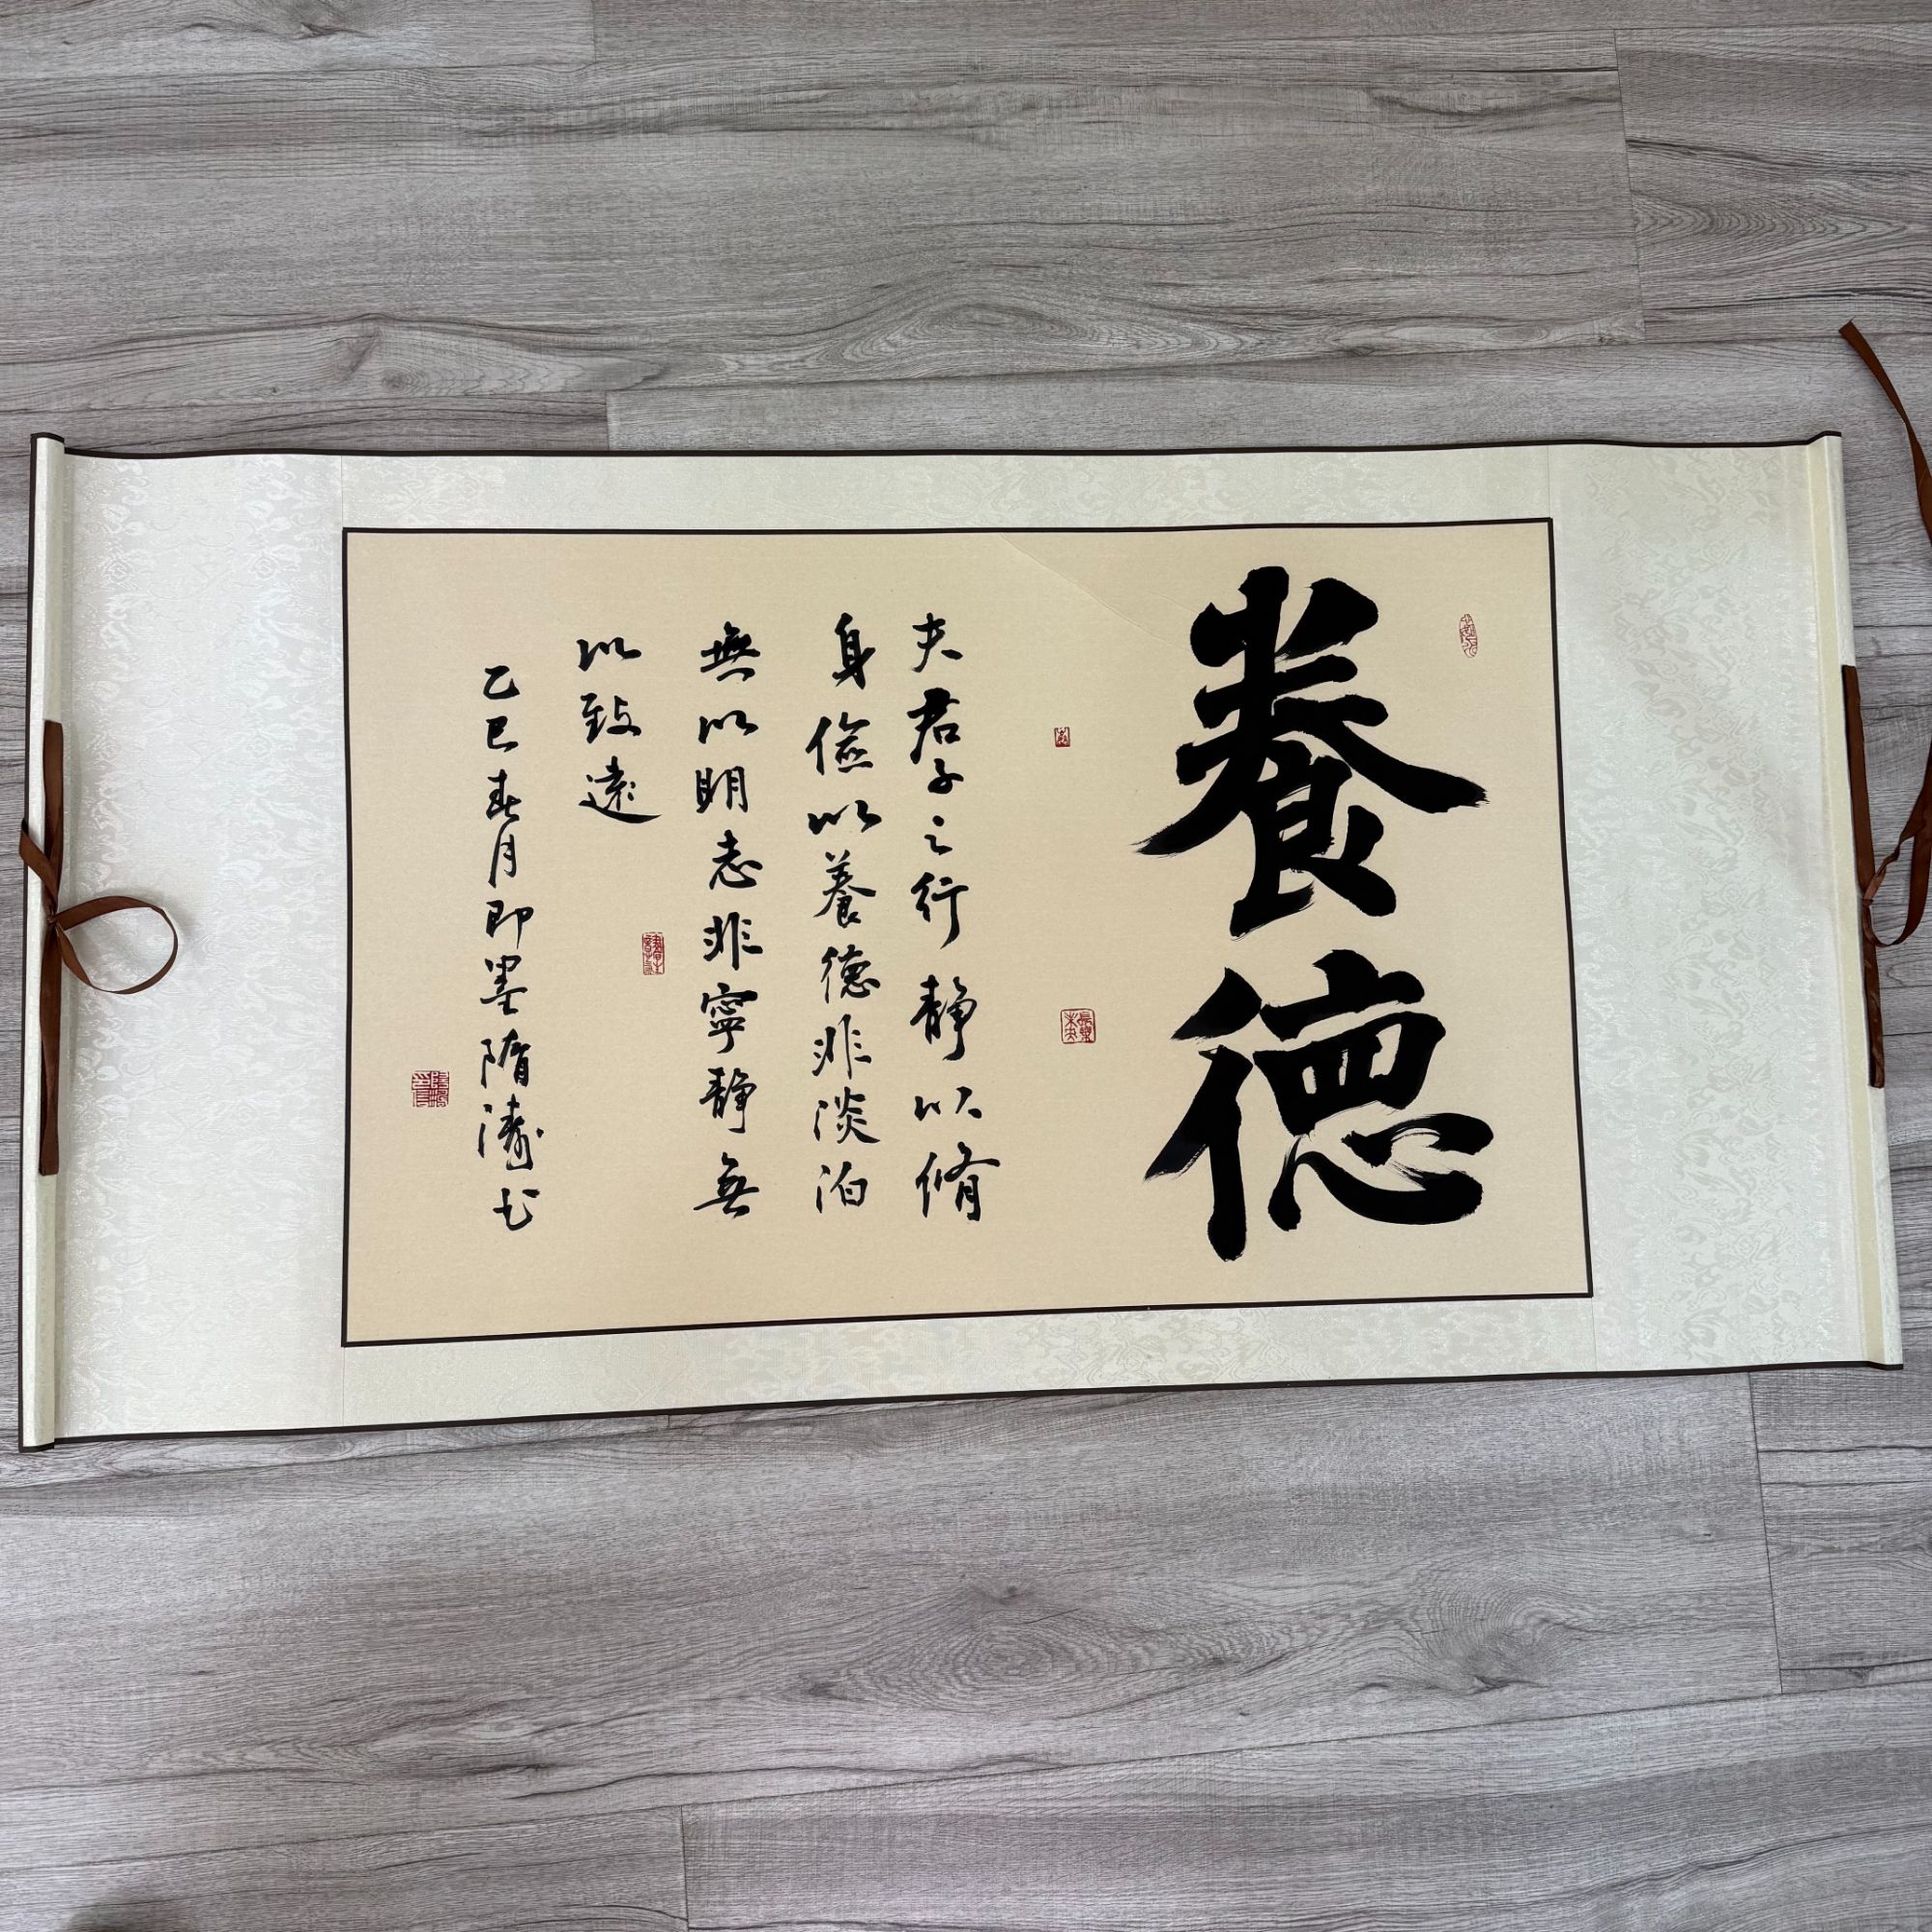 養德
夫君子之行靜以脩
身儉以養德非淡泊
無以明志非寧靜無
以致遠
乙巳春月即墨隋濤书
長樂未央